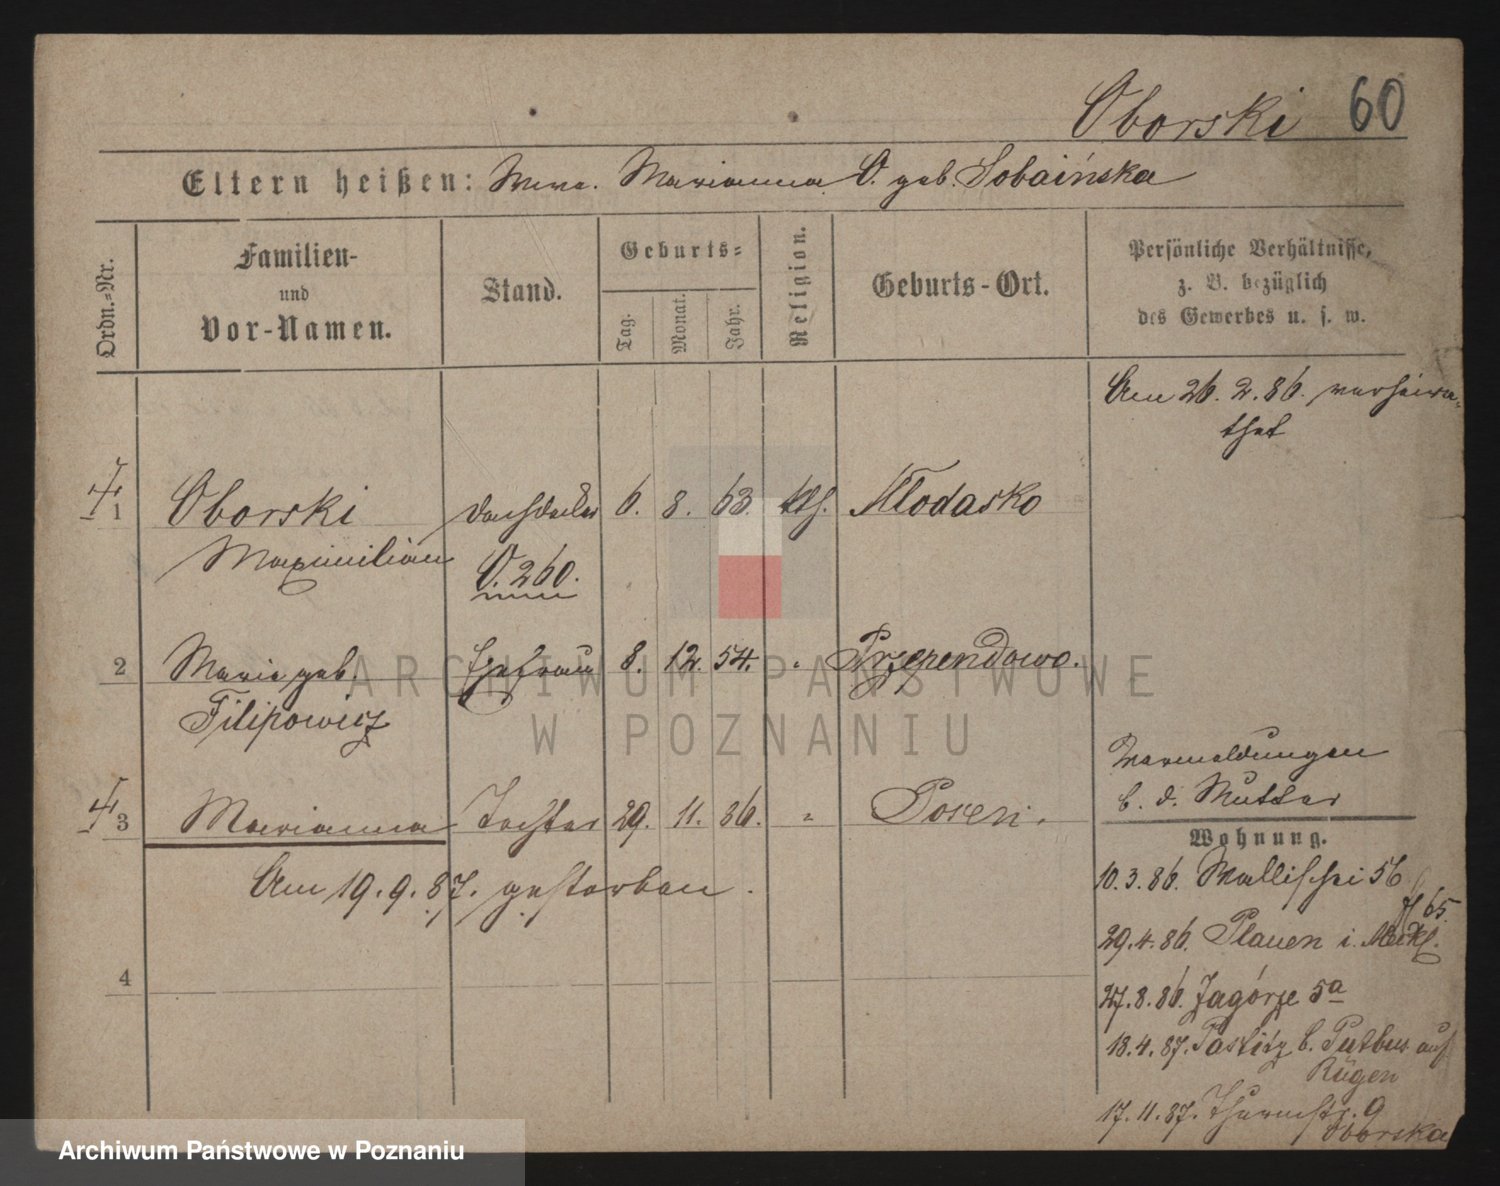 Oborski 60
Eltern heißen: Wwe. Marianna O. geb. Sobaińska
Ordn.-Nr.
Familien-
und
Vor-Namen.
Stand.
Geburts-
Tag.
Monat.
Jahr.
Religion.
Geburts-Ort.
Persönliche Verhältnisse,
z. B. bezüglich
des Gewerbes u. s. w.
Am 26. 2. 86. verheira-
thet
1 Oborski Dachdecker 6. 8. 63. kth. Młodasko
Maximilian O. 260.
2 Marie geb. Ehefrau 8. 12. 54. " Przependowo.
Filipowicz
Vermeldungen
b. d. Mutter
3 Marianna Tochter 29. 11. 86. " Posen.
Wohnung.
Am 19. 9. 87. gestorben.
10. 3. 86. Wallischei 56
65.
29. 4. 86. Plauen i. Meckl.
4
27. 8. 86. Zagórze 5a
18. 4. 87. b. Putbus auf
Rügen
17. 11. 87. Thurmstr. 9
Oborska
ARCHIWUM PAŃSTWOWE
W POZNANIU
Archiwum Państwowe w Poznaniu